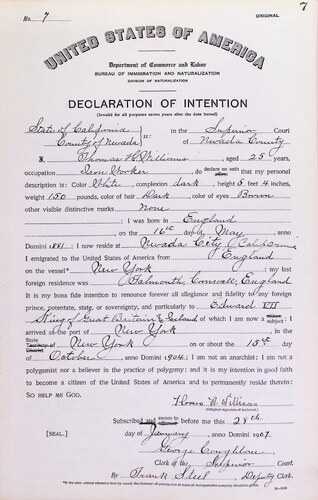 7
No. 7
ORIGINAL
UNITED STATES OF AMERICA
Department of Commerce and Labor
BUREAU OF IMMIGRATION AND NATURALIZATION
DIVISION OF NATURALIZATION
DECLARATION OF INTENTION
(Invalid for all purposes seven years after the date hereof)
State of California
County of Nevada
ss:
In the Superior Court
of Nevada County
I, Thomas H. Williams, aged 25 years,
occupation Iron Worker, do declare on oath that my personal
description is: Color White, complexion dark, height 5 feet 4 inches,
weight 150 pounds, color of hair Dark, color of eyes Brown
other visible distinctive marks None
; I was born in England
on the 16th day of May, anno
Domini 1881; I now reside at Nevada City, California
I emigrated to the United States of America from England
on the vessel* New York; my last
foreign residence was Falmouth, Cornwall, England
It is my bona fide intention to renounce forever all allegiance and fidelity to any foreign
prince, potentate, state, or sovereignty, and particularly to Edward VII
King of Great Britain & Ireland, of which I am now a subject; I
arrived at the port of New York, in the
State of New York on or about the 15th day
of October, anno Domini 1906; I am not an anarchist; I am not a
polygamist nor a believer in the practice of polygamy; and it is my intention in good faith
to become a citizen of the United States of America and to permanently reside therein:
SO HELP ME GOD.
Williams
(Original signature of declarant.)
Subscribed and sworn to before me this 28th
[SEAL.] day of January, anno Domini 1907.
George
Clerk of the Superior Court.
By Frank Steel, Deputy Clerk.